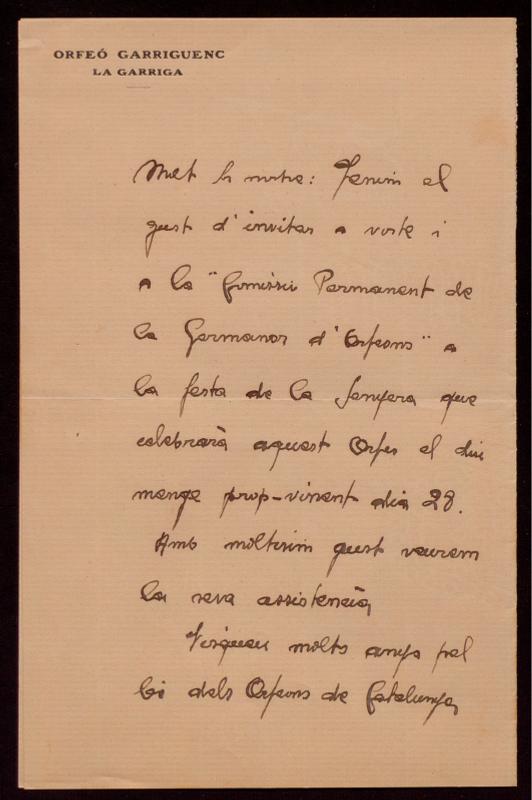 ORFEÓ GARRIGUENC
LA GARRIGA
Molt Sr nostre: Tenim el
gust d'invitar a voste i
a la "Comissió Permanent de
la Germanor d'Orfeons" a
la festa de la Senyera que
celebrarà aquest Orfeó el diu
menge prop-vinent dia 28.
Amb moltissim gust veurem
la seva assistencia,
Visqueu molts anys pel
bé dels Orfeons de Catalunya,